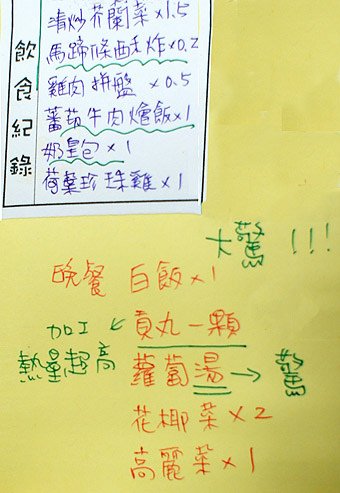 飲食紀錄
清炒芥蘭菜×1.5
馬蹄條酥炸×0.2
雞肉拼盤 ×0.5
蕃茄牛肉燴飯×1
奶皇包×1
荷葉珍珠雞×1
大驚 !!!
晚餐 白飯×1
加工 ← 貢丸一顆
熱量超高 蘿蔔湯 → 驚
花椰菜×2
高麗菜×1